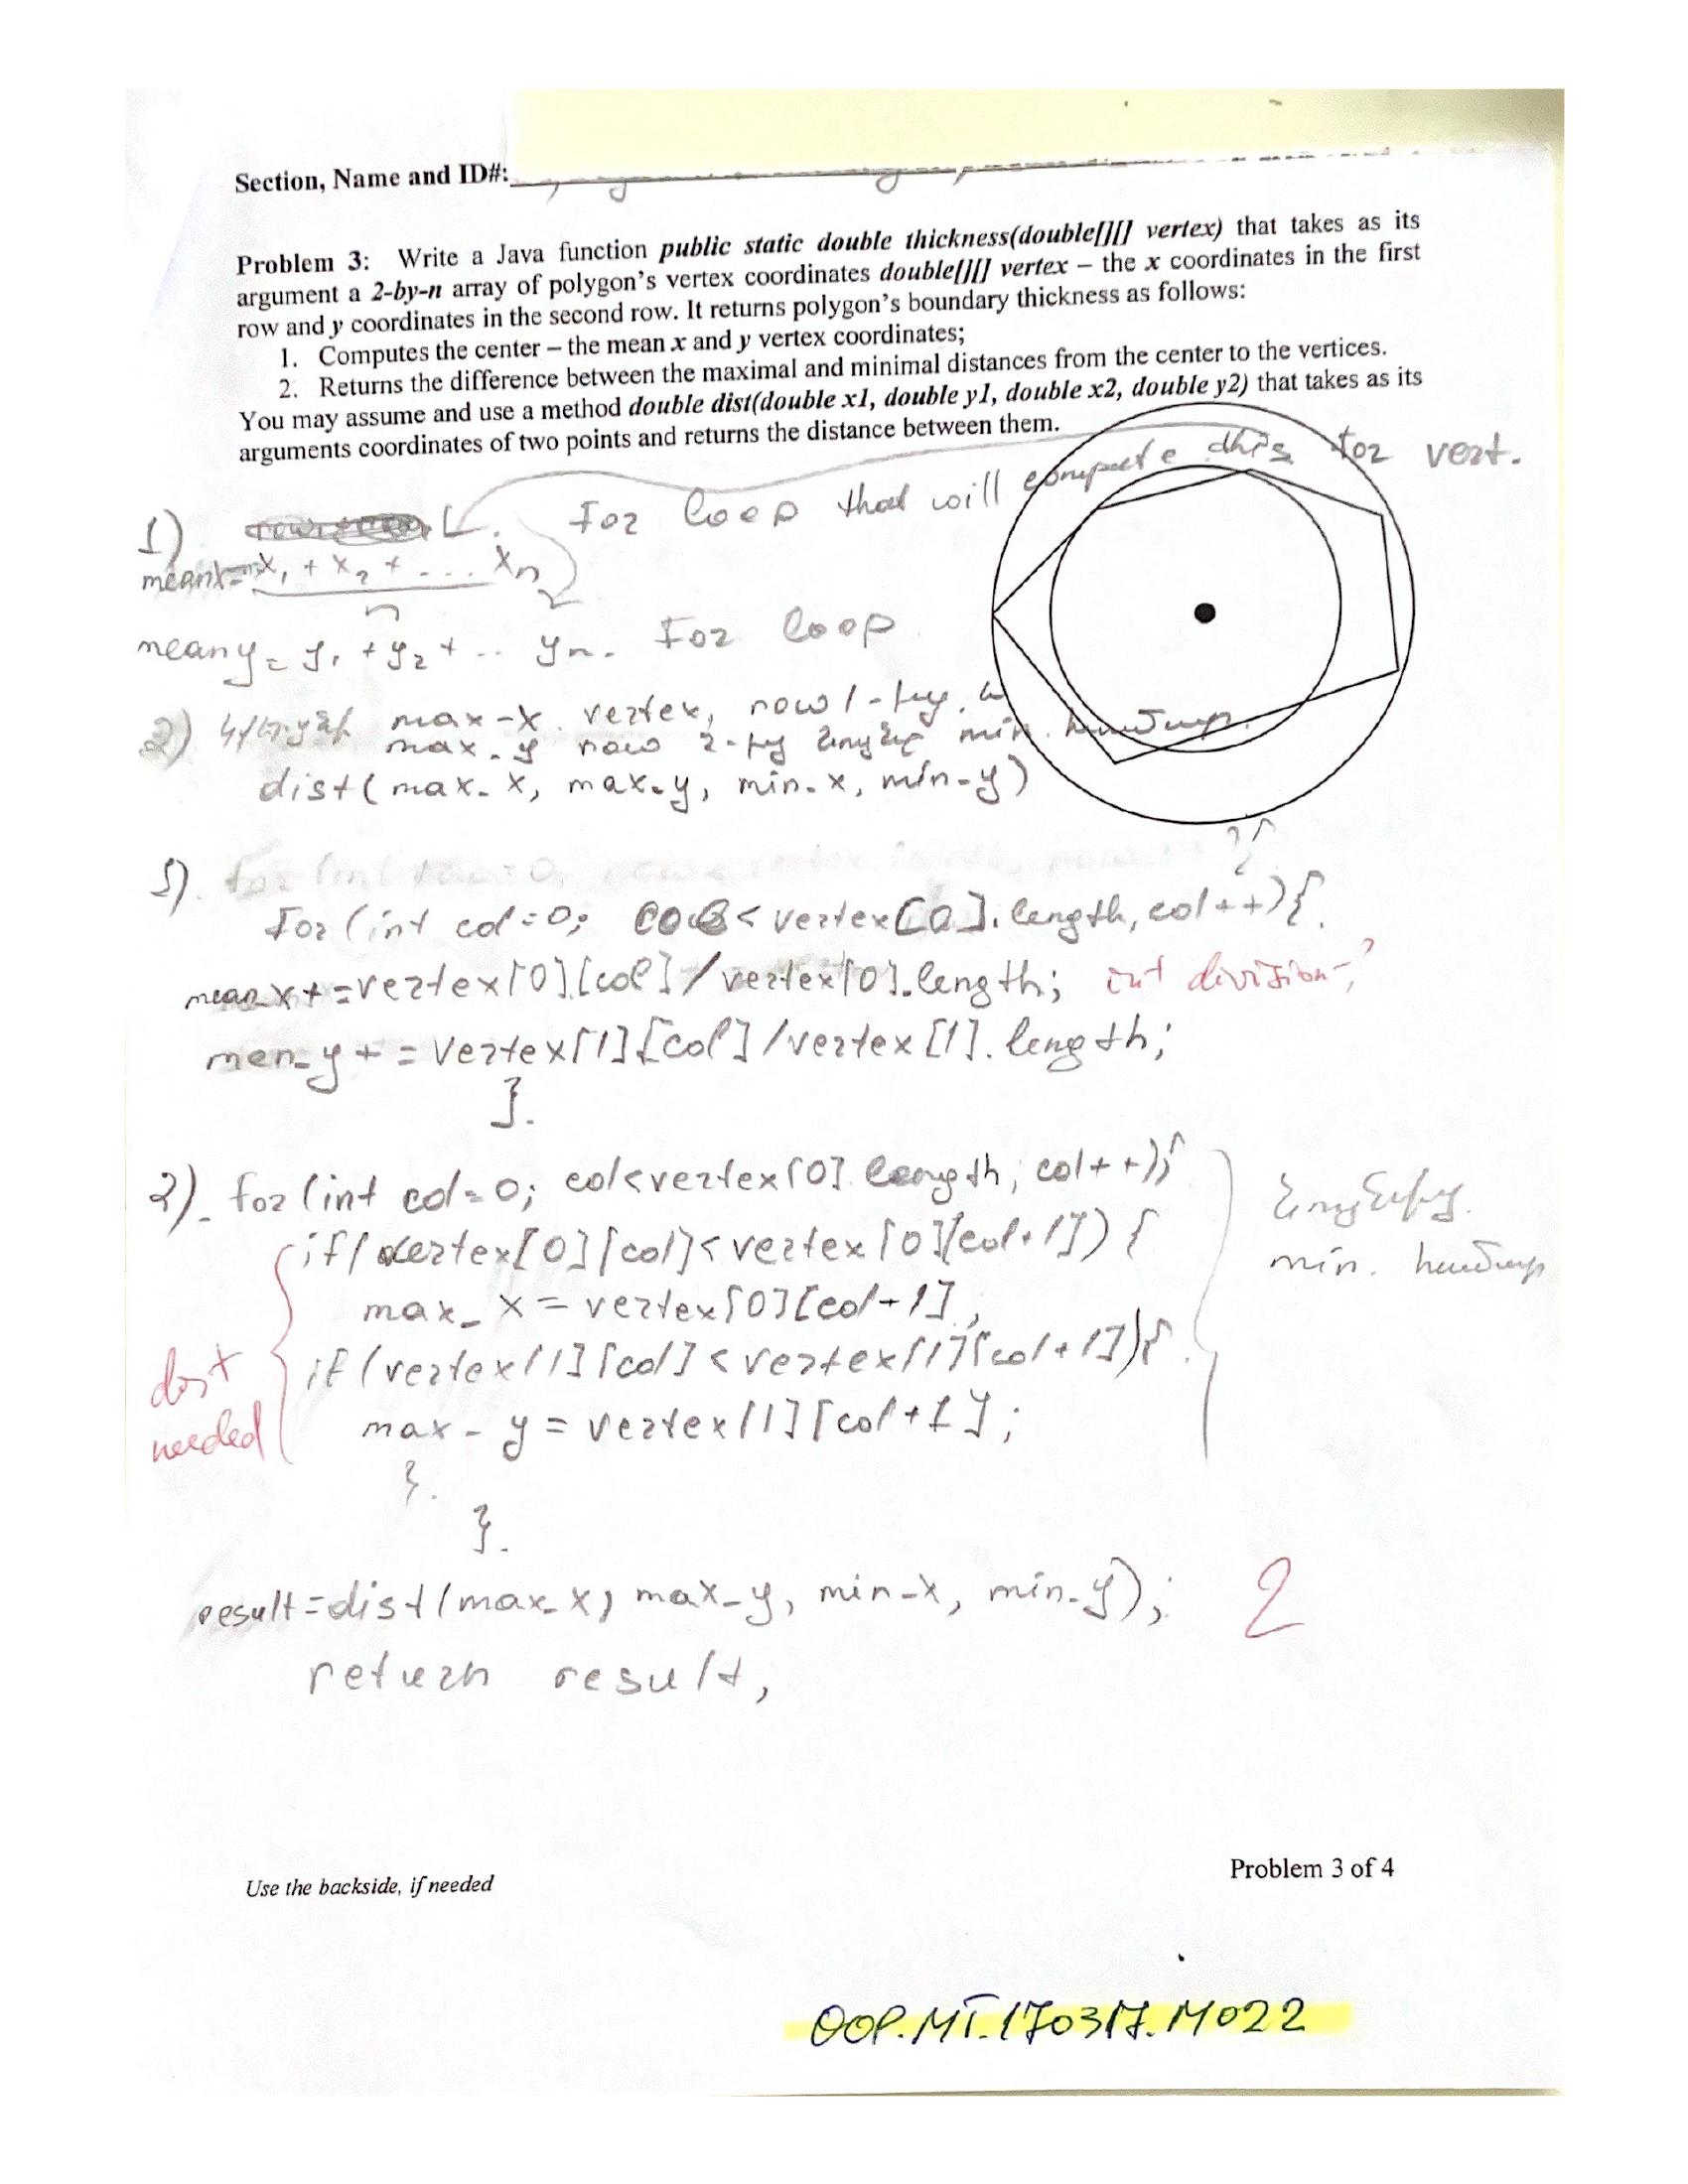 Section, Name and ID#:
Problem 3: Write a Java function public static double thickness(double[][] vertex) that takes as its
argument a 2-by-n array of polygon's vertex coordinates double[][] vertex – the x coordinates in the first
row and y coordinates in the second row. It returns polygon's boundary thickness as follows:
1. Computes the center – the mean x and y vertex coordinates;
2. Returns the difference between the maximal and minimal distances from the center to the vertices.
You may assume and use a method double dist(double x1, double y1, double x2, double y2) that takes as its
arguments coordinates of two points and returns the distance between them.
1) For loop that will compute this for vert.
meanx= x₁ + x₂ + .... xₙ
n
meany= y₁ + y₂ + .. yₙ. For loop
2) max-x. vertex, row 1
max-y row 2 min.
dist( max-x, max-y, min-x, min-y)
1).
For (int col=0; col < vertex[0].length, col++){.
mean_x+=vertex[0][col]/vertex[0].length; int division-?
men_y+=vertex[1][col]/vertex[1].length;
}.
2). for(int col=0; col<vertex[0].length; col++){
if(vertex[0][col]<vertex[0][col+1]) {
min.
max_x = vertex[0][col+1];
if(vertex[1][col] < vertex[1][col+1]){.
dist
needed
max-y = vertex[1][col+1];
}.
}.
result=dist(max-x, max-y, min-x, min-y); 2
return result,
Use the backside, if needed
Problem 3 of 4
OOP.MT.170317.M022